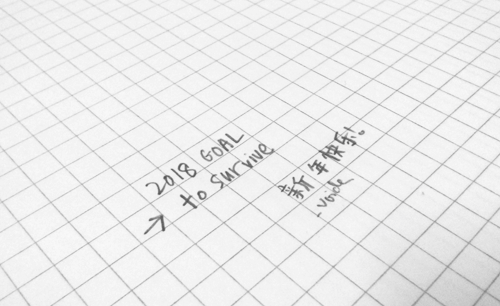 2018 GOAL
→ to survive
新年快乐!
- voide